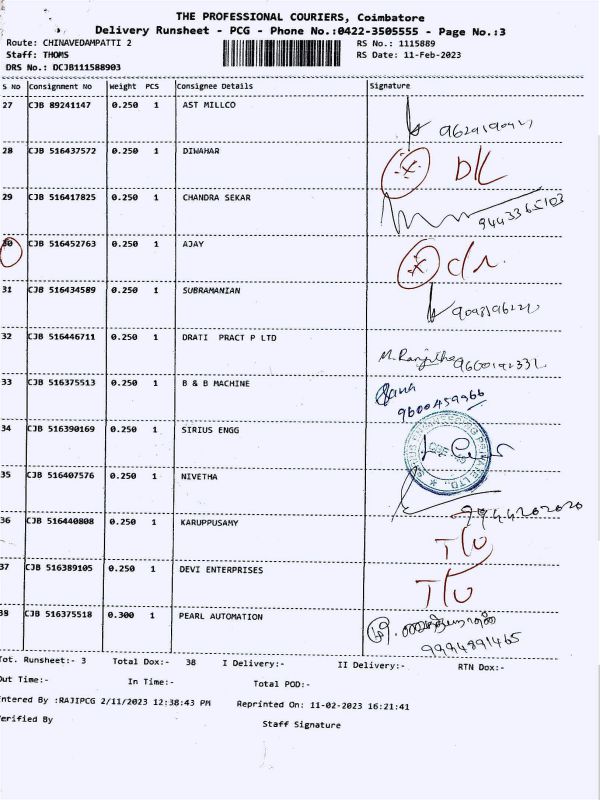 THE PROFESSIONAL COURIERS, Coimbatore
Delivery Runsheet - PCG - Phone No.:0422-3505555 - Page No.:3
Route: CHINAVEDAMPATTI 2 RS No.: 1115889
Staff: THOMS RS Date: 11-Feb-2023
DRS No.: DCJB111588903
S No Consignment No Weight PCS Consignee Details Signature
27 CJB 89241147 0.250 1 AST MILLCO
28 CJB 516437572 0.250 1 DIWAHAR D/L
29 CJB 516417825 0.250 1 CHANDRA SEKAR 9443365103
30 CJB 516452763 0.250 1 AJAY
31 CJB 516434589 0.250 1 SUBRAMANIAN
32 CJB 516446711 0.250 1 DRATI PRACT P LTD M. Ranjitha
33 CJB 516375513 0.250 1 B & B MACHINE
9600459966
34 CJB 516390169 0.250 1 SIRIUS ENGG
35 CJB 516407576 0.250 1 NIVETHA
9944202020
36 CJB 516440808 0.250 1 KARUPPUSAMY T/U
37 CJB 516389105 0.250 1 DEVI ENTERPRISES T/U
38 CJB 516375518 0.300 1 PEARL AUTOMATION
9994891465
Tot. Runsheet:- 3 Total Dox:- 38 I Delivery:- II Delivery:- RTN Dox:-
Out Time:- In Time:- Total POD:-
Entered By :RAJIPCG 2/11/2023 12:38:43 PM Reprinted On: 11-02-2023 16:21:41
Verified By Staff Signature